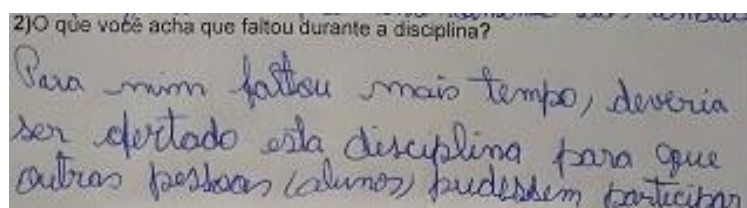 2)O que você acha que faltou durante a disciplina?
Para mim faltou mais tempo, deveria
ser ofertado esta disciplina para que
outras pessoas (alunos) pudessem participar